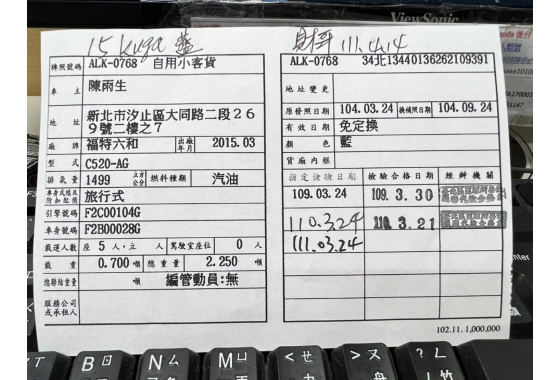 15 kuga 藍
財哥 111.04.14
牌照號碼 ALK-0768 自用小客貨
車主 陳雨生
地址 新北市汐止區大同路二段26
9號二樓之7
廠牌 福特六和 出廠年月 2015.03
型式 C520-AG
排氣量 1499 立方公分 燃料種類 汽油
車身式樣及附加配備 旅行式
引擎號碼 F2C00104G
車身號碼 F2B00028G
載運人數 座 5 人.立 人 駕駛室座位 0 人
載重 0.700 噸 總重量 2.250 噸
總聯結重量 噸 編管動員:無
服務公司或承租人
ALK-0768 34北13440136262109391
地址變更
原發照日期 104.03.24 換補照日期 104.09.24
有效日期 免定換
顏色 藍
貨廂內框
指定檢驗日期 檢驗合格日期 經辦機關
109.03.24 109. 3. 30
110.3.24 110. 3. 21
111.03.24
102.11.1,000,000
ViewSonic
B ㄖ N ㄙ M ㄩ < ㄝ > ㄡ ? ㄥ